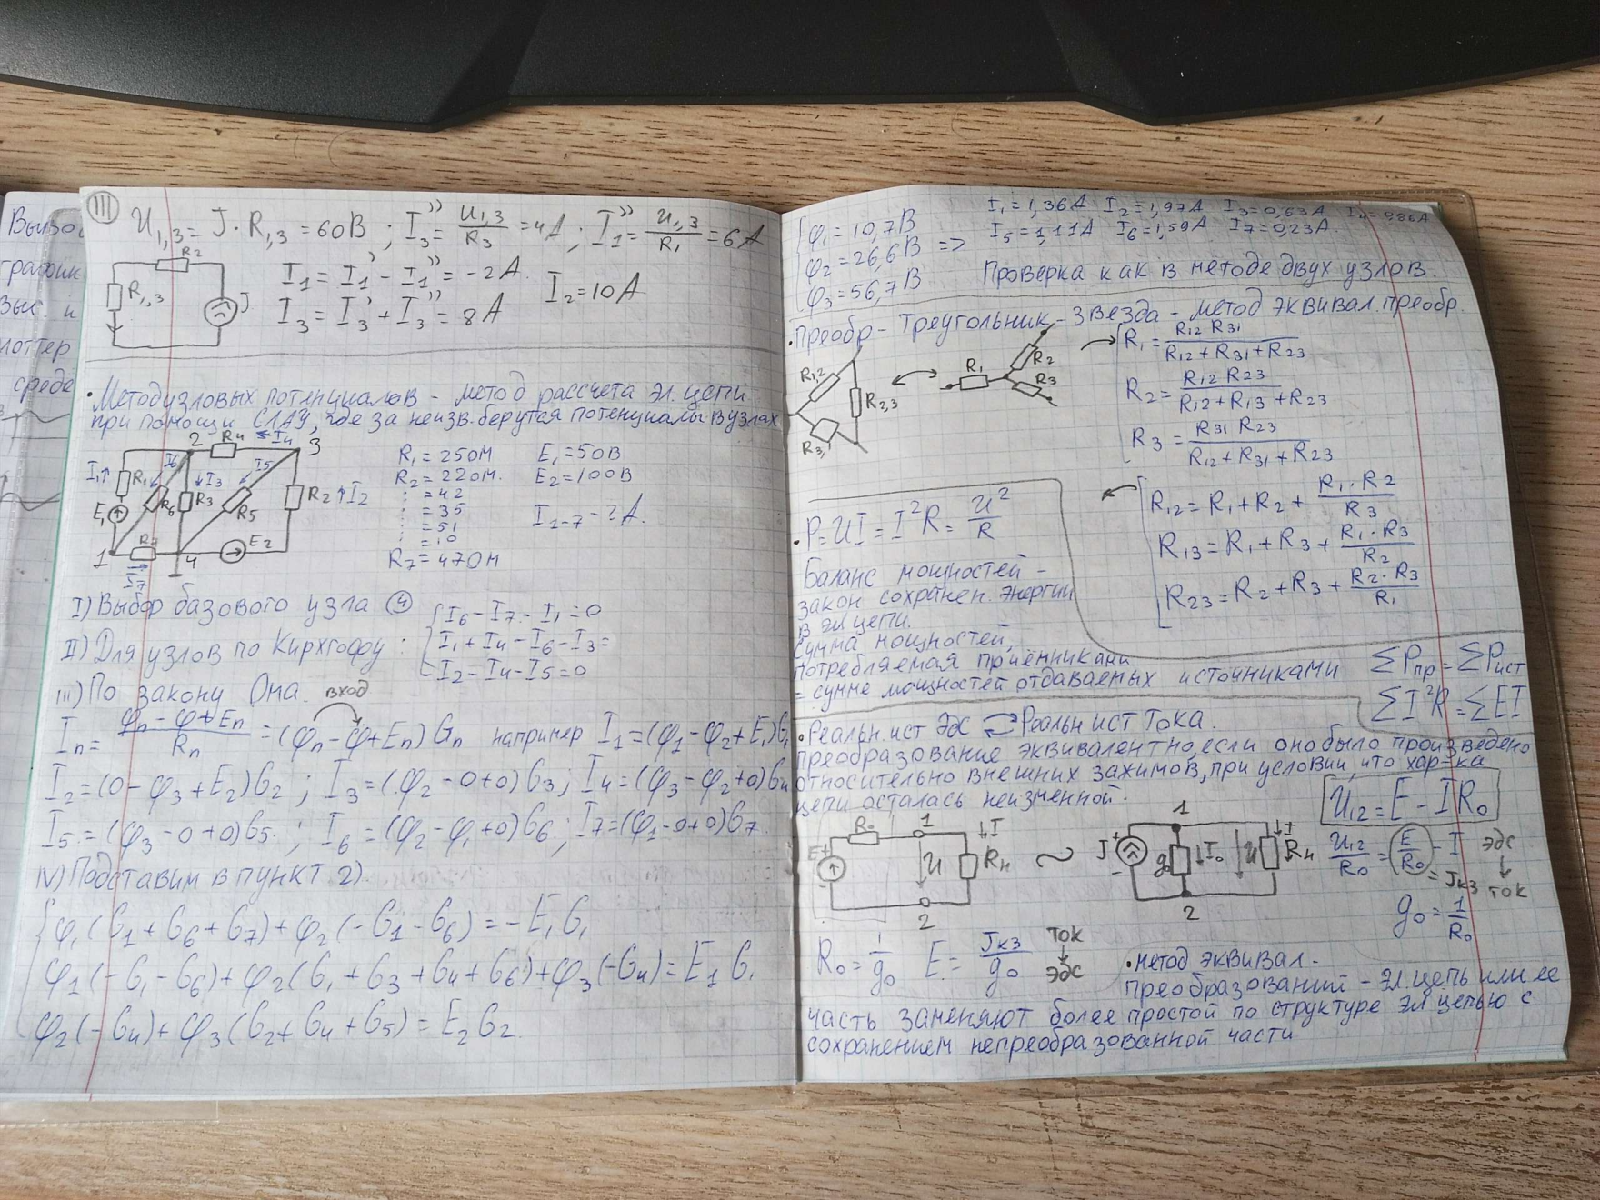 Вызо
график
вы и
лоттер
среде
III
U₁,₃ = J · R₁,₃ = 60В ; I₃'' = U₁,₃/R₃ = 4А ; I₁'' = U₁,₃/R₁ = 6А
R₂
R₁,₃
J
I₁ = I₁' - I₁'' = -2А.
I₂ = 10А
I₃ = I₃' + I₃'' = 8А
• Метод узловых потенциалов - метод рассчета эл. цепи
при помощи СЛАУ, где за неизв. берутся потенциалы в узлах
2 R₄ I₄ 3
I₁ R₁ I₆ I₃ I₅ R₂ I₂
E₁ R₆ R₃ R₅
1 R₇ 4 E₂
I₇
R₁ = 25 Ом E₁ = 50В
R₂ = 22 Ом. E₂ = 100В
= 42
= 35 I₁₋₇ - ? А.
= 51
= 10
R₇ = 47 Ом
I) Выбор базового узла ④
II) Для узлов по Кирхгофу :
{ I₆ - I₇ - I₁ = 0
I₁ + I₄ - I₆ - I₃ =
I₂ - I₄ - I₅ = 0
III) По закону Ома вход
Iₙ = (φₙ - φ + Eₙ)/Rₙ = (φₙ - φ + Eₙ) Gₙ например I₁ = (φ₁ - φ₂ + E₁)G₁
I₂ = (0 - φ₃ + E₂)G₂ ; I₃ = (φ₂ - 0 + 0)G₃ ; I₄ = (φ₃ - φ₂ + 0)G₄
I₅ = (φ₃ - 0 + 0)G₅ ; I₆ = (φ₂ - φ₁ + 0)G₆ ; I₇ = (φ₁ - 0 + 0)G₇
IV) Подставим в пункт 2).
{ φ₁(G₁ + G₆ + G₇) + φ₂(-G₁ - G₆) = -E₁G₁
φ₁(-G₁ - G₆) + φ₂(G₁ + G₃ + G₄ + G₆) + φ₃(-G₄) = E₁G₁
φ₂(-G₄) + φ₃(G₂ + G₄ + G₅) = E₂G₂.
{ φ₁ = 10,7В
φ₂ = 26,6В =>
φ₃ = 56,7В
I₁ = 1,36А I₂ = 1,97А I₃ = 0,63А
I₅ = 1,11А I₆ = 1,59А I₇ = 0,23А.
Проверка как в методе двух узлов
• Преобр - Треугольник - Звезда - метод эквивал. преобр.
R₁,₂ R₂,₃ R₃,₁
R₁ R₂ R₃
R₁ = R₁₂ R₃₁ / (R₁₂ + R₃₁ + R₂₃)
R₂ = R₁₂ R₂₃ / (R₁₂ + R₁₃ + R₂₃)
R₃ = R₃₁ R₂₃ / (R₁₂ + R₃₁ + R₂₃)
R₁₂ = R₁ + R₂ + R₁ · R₂ / R₃
R₁₃ = R₁ + R₃ + R₁ · R₃ / R₂
R₂₃ = R₂ + R₃ + R₂ · R₃ / R₁
• P = UI = I²R = U²/R
Баланс мощностей -
закон сохранен. энергии
в эл цепи.
Сумма мощностей,
потребляемая приёмниками
= сумме мощностей отдаваемых источниками
ΣPпр = ΣPист
ΣI²R = ΣEI
• Реальн. ист ЭДС ⇄ Реальн ист Тока.
преобразование эквивалентно, если оно было произведено
относительно внешних зажимов, при условии, что хар-ка
цепи осталась неизменной.
U₁₂ = E - IR₀
R₀ 1 I
E U Rн
2
J g₀ I₀ U I Rн
1
2
U₁₂/R₀ = E/R₀ - I
= Jкз
ЭДС
↓
ток
g₀ = 1/R₀
R₀ = 1/g₀ E = Jкз/g₀
ток
↓
ЭДС
• метод эквивал.
преобразований - эл. цепь или ее
часть заменяют более простой по структуре эл цепью с
сохранением непреобразованной части